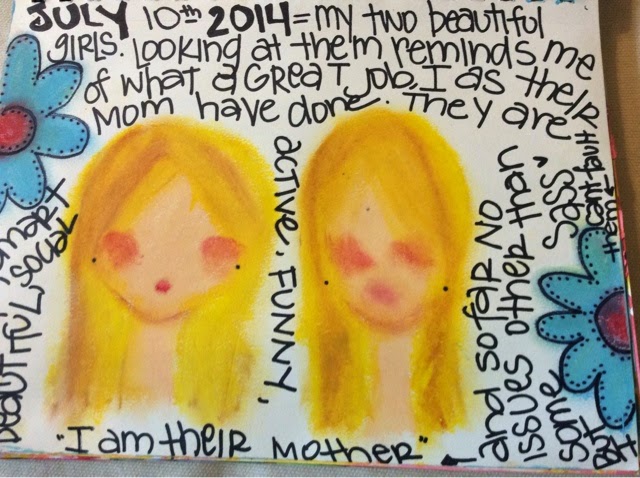 JULY 10th 2014 = my two beautiful
GIRLS. Looking at them reminds me
of what a GREAT job, I as theiR
Mom have done. They are
BeaUTifUl, social
smaRT
active, FUNNY,
and so faR NO
issues other than
some SASS,
BUT
cant fault
them
"I am theiR MotheR"